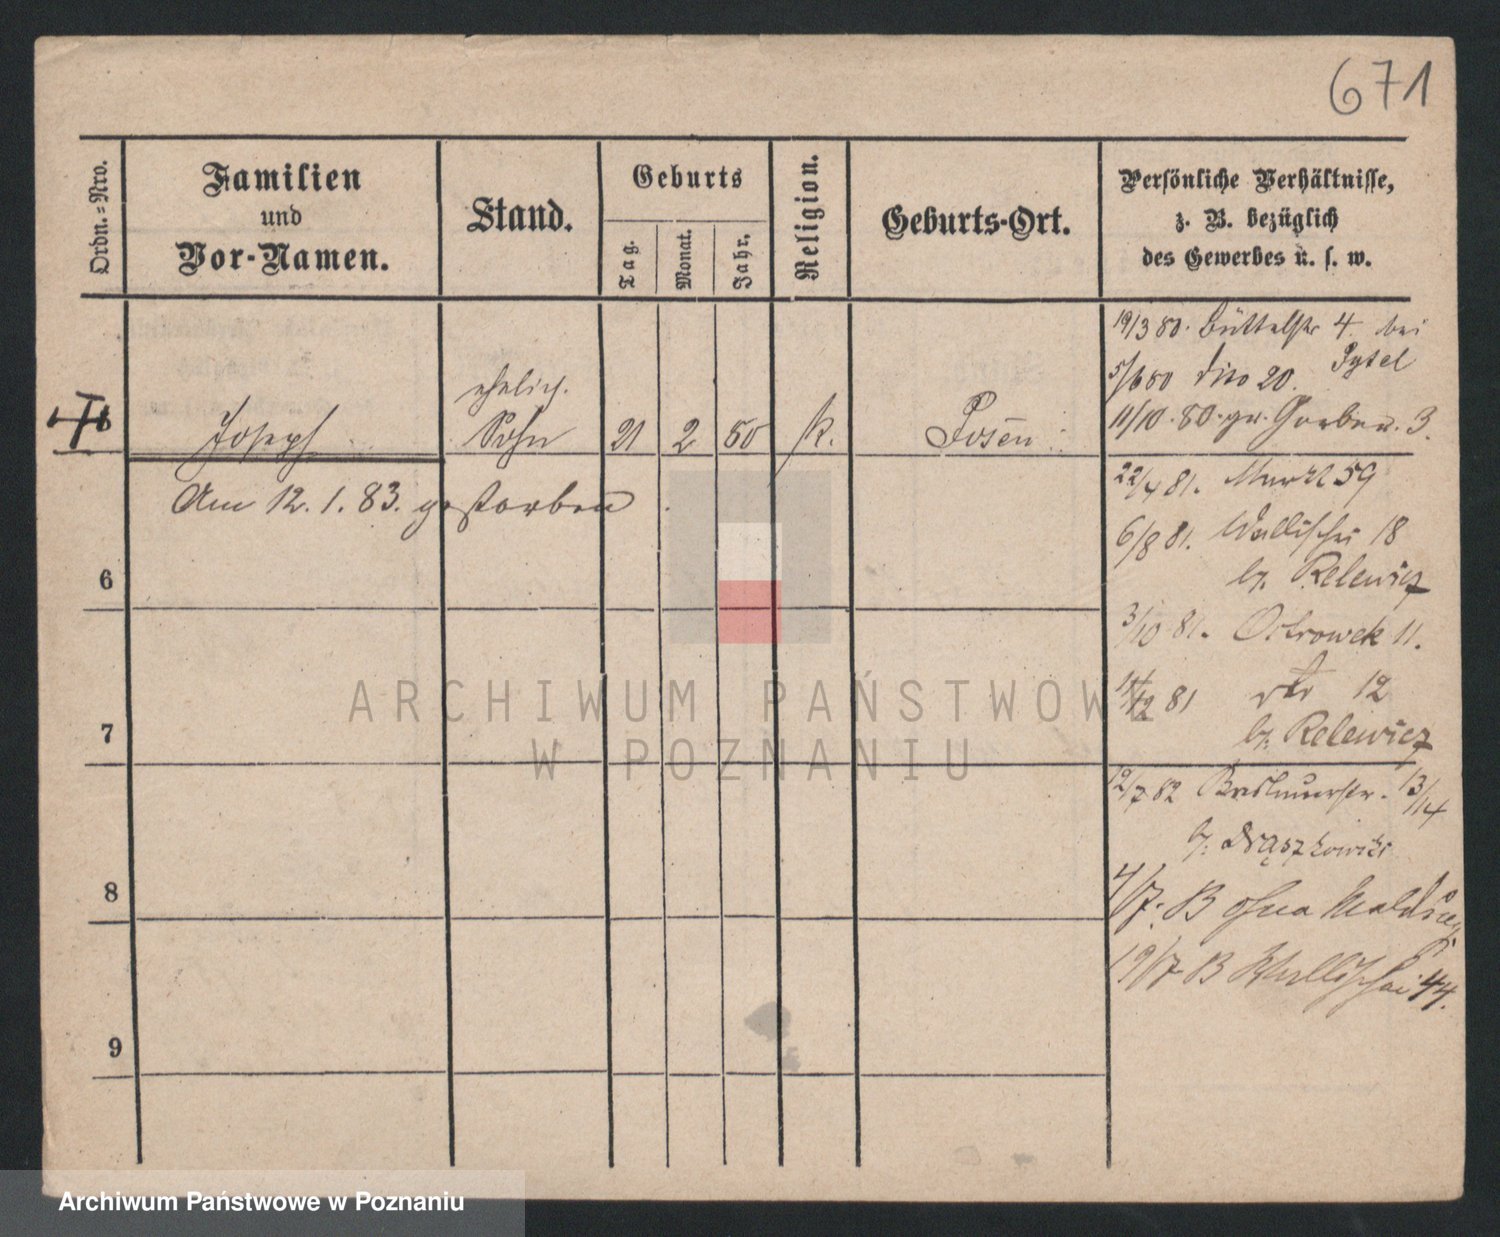 671
Ordn.=Nro.
Familien
und
Vor-Namen.
Stand.
Geburts
Tag.
Monat.
Jahr.
Religion.
Geburts-Ort.
Persönliche Verhältnisse,
z. B. bezüglich
des Gewerbes u. s. w.
19/3 80. Büttelstr 4 bei
Zytel
5/6 80 dito 20.
11/10. 80. gr. Gerber. 3.
ehelich.
Joseph Sohn 21 2 80 k. Posen
Am 12. 1. 83. gestorben
22/4 81. 59
6/8 81. Wallischei 18
b. Relewicz
3/10 81. Ostrowek 11.
11/12 81 dto 12
b. Relewicz
12/7 82 Breslauerstr. 13/14
b.
4/7. B ohna
19/7 B Wallischei 44.
6
7
8
9
ARCHIWUM PAŃSTWOWE
W POZNANIU
Archiwum Państwowe w Poznaniu